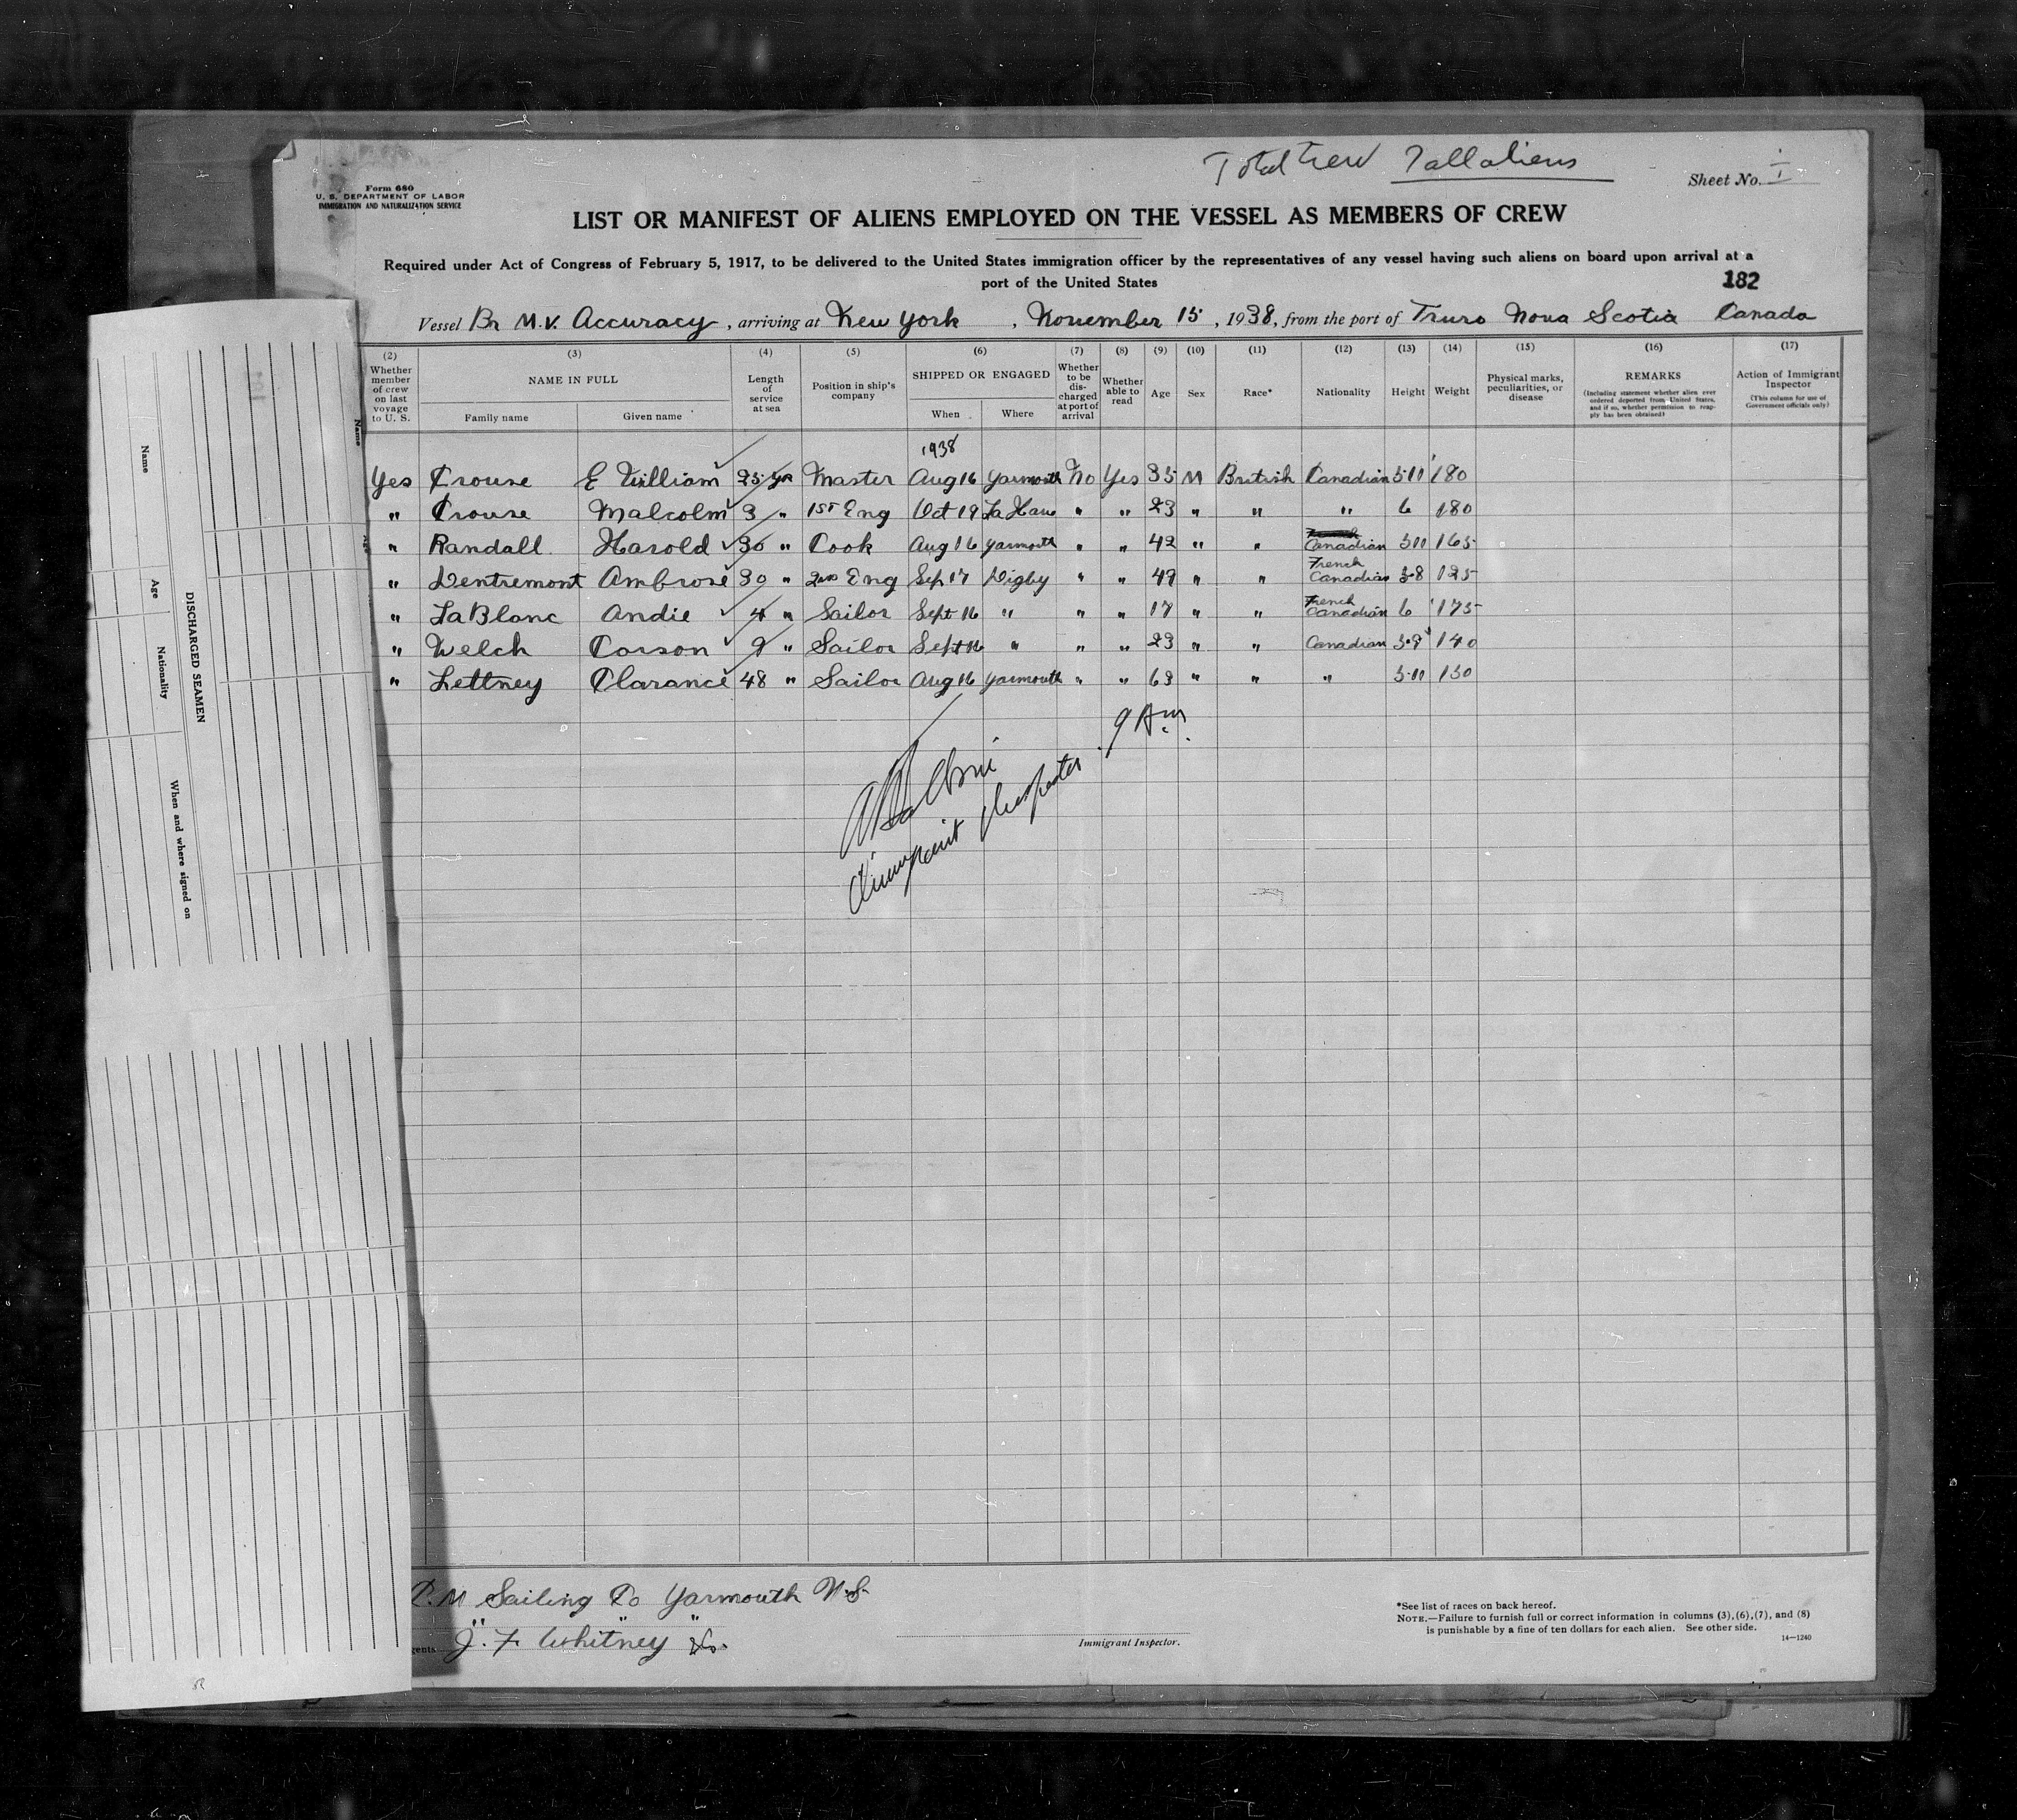 Total Crew 7 all aliens
Form 680
U. S. DEPARTMENT OF LABOR
IMMIGRATION AND NATURALIZATION SERVICE
Sheet No. 1
LIST OR MANIFEST OF ALIENS EMPLOYED ON THE VESSEL AS MEMBERS OF CREW
Required under Act of Congress of February 5, 1917, to be delivered to the United States immigration officer by the representatives of any vessel having such aliens on board upon arrival at a
port of the United States
182
Vessel Br M.V. Accuracy, arriving at New York, November 15, 1938, from the port of Truro Nova Scotia Canada
(2) (3) (4) (5) (6) (7) (8) (9) (10) (11) (12) (13) (14) (15) (16) (17)
Whether member of crew on last voyage to U. S. NAME IN FULL Family name Given name Length of service at sea Position in ship's company SHIPPED OR ENGAGED When Where Whether to be discharged at port of arrival Whether able to read Age Sex Race* Nationality Height Weight Physical marks, peculiarities, or disease REMARKS (Including statement whether alien ever ordered deported from United States, and if so, whether permission to reapply has been obtained) Action of Immigrant Inspector (This column for use of Government officials only)
1938
Yes Crouse E William 25 yr Master Aug 16 Yarmouth No Yes 35 M British Canadian 5-11 180
" Crouse Malcolm 3 " 1st Eng Oct 19 La Have " " 23 " " " 6 180
" Randall Harold 30 " Cook Aug 16 Yarmouth " " 42 " " Canadian 5-11 165
" Dentremont Ambrose 30 " 2nd Eng Sep 17 Digby " " 47 " " French Canadian 5-8 125
" LaBlanc Andie 4 " Sailor Sept 16 " " " 17 " " French Canadian 6 175
" Welch Carson 9 " Sailor Sept 16 " " " 23 " " Canadian 5-9 140
" Lettney Clarance 48 " Sailor Aug 16 Yarmouth " " 63 " " " 5-11 130
9 Am
Inspector
Name
Age
Nationality
When and where signed on
DISCHARGED SEAMEN
Name
C. M Sailing Co Yarmouth N.S.
J. F. Whitney Co.
Immigrant Inspector.
*See list of races on back hereof.
NOTE.—Failure to furnish full or correct information in columns (3), (6), (7), and (8)
is punishable by a fine of ten dollars for each alien. See other side.
14—1240